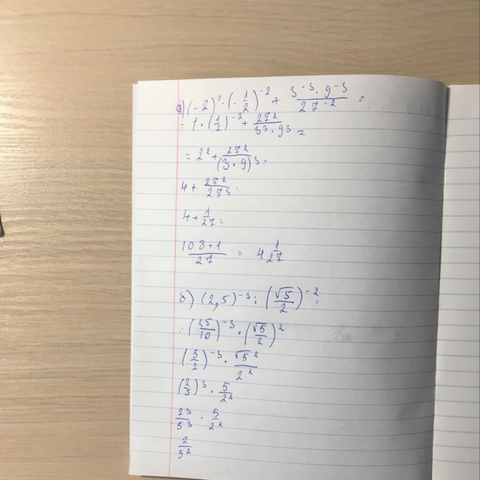 а) (-2)⁰ · (-1/2)⁻² + 3⁻³ · 9⁻³/27⁻² =
= 1 · (1/2)⁻² + 27²/3³ · 9³ =
= 2² + 27²/(3 · 9)³ =
4 + 27²/27³ =
4 + 1/27 =
108+1/27 = 4 1/27
б) (2,5)⁻³ : (√5/2)⁻² =
= (25/10)⁻³ · (√5/2)²
(5/2)⁻³ · √5²/2²
(2/5)³ · 5/2²
2³/5³ · 5/2²
2/5²